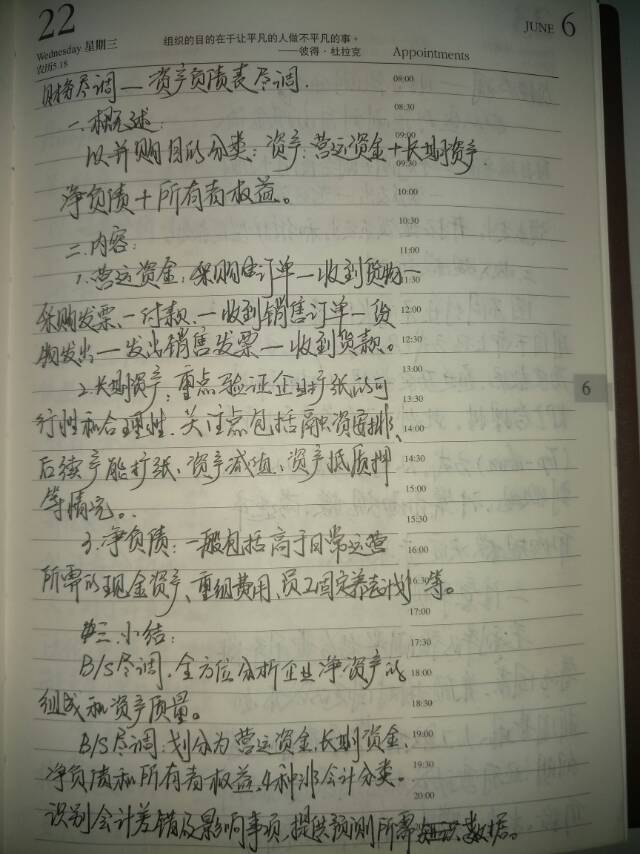 22
Wednesday 星期三
农历5.18
组织的目的在于让平凡的人做不平凡的事。
——彼得·杜拉克
Appointments
JUNE 6
财务尽调—资产负债表尽调.
08:00
08:30
一.概述:
09:00
以并购目的分类:资产:营运资金+长期资产.
09:30
净负债+所有者权益。
10:00
10:30
二.内容:
11:00
1.营运资金:采购订单—收到货物—
11:30
采购发票、—付款、—收到销售订单—货
12:00
物发出—发出销售发票—收到货款。
12:30
2.长期资产:重点验证企业扩张的可
13:00
13:30
行性和合理性.关注点包括融资安排、
14:00
后续产能扩张、资产减值、资产抵质押
14:30
等情况。
15:00
15:30
3.净负债:一般包括高于日常运营
16:00
所需的现金资产、重组费用、员工固定养老计划等。
16:30
17:00
三.小结:
17:30
B/S尽调:全方位分析企业净资产的
18:00
组成和资产质量。
18:30
B/S尽调:划分为营运资金,长期资金,
19:00
净负债和所有者权益,4种非会计分类。
19:30
20:00
识别会计差错及影响事项,提供预测所需数据。
6